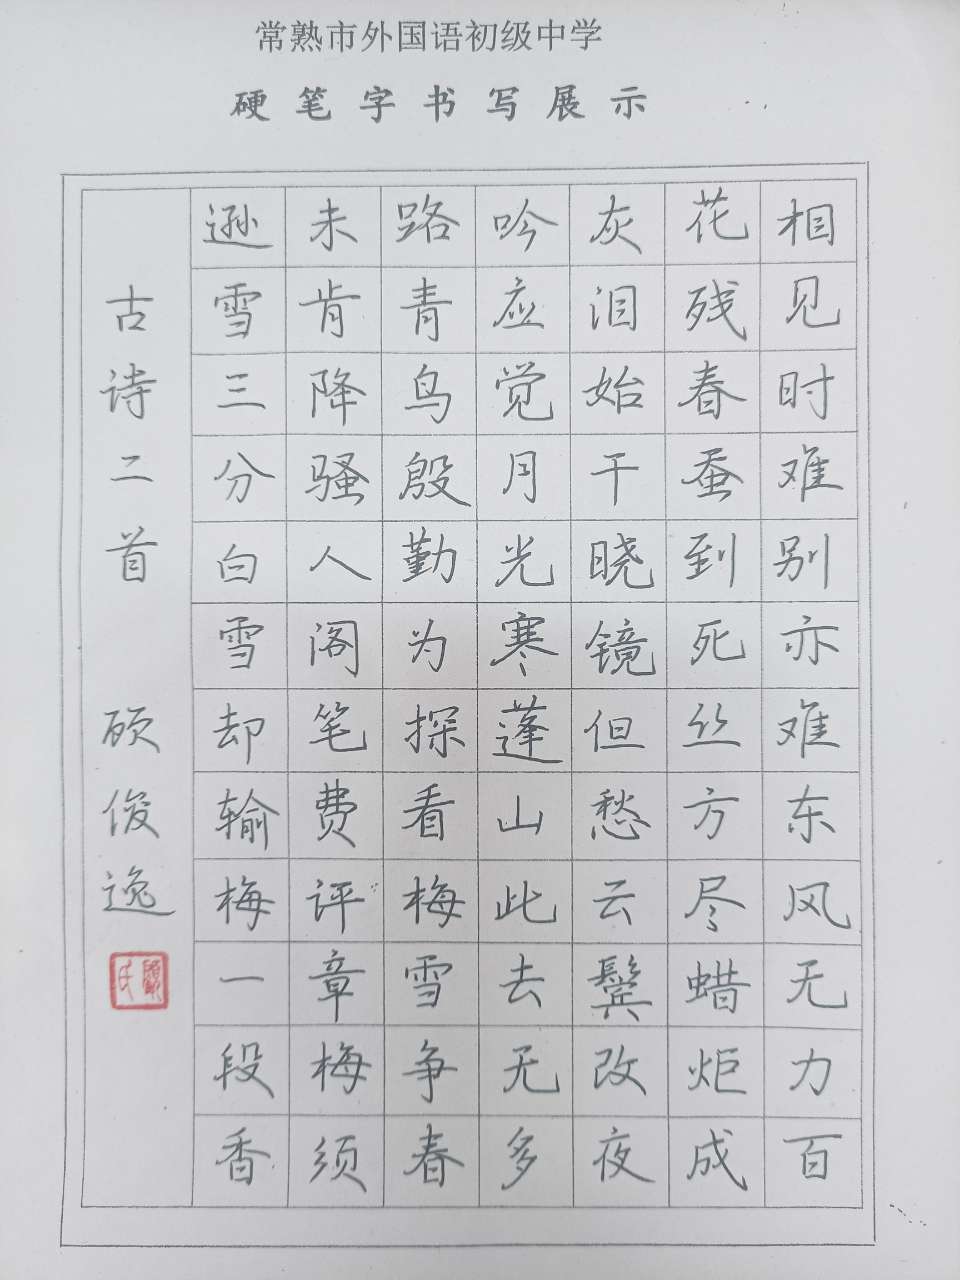 常熟市外国语初级中学
硬笔字书写展示
相见时难别亦难东风无力百
花残春蚕到死丝方尽蜡炬成
灰泪始干晓镜但愁云鬓改夜
吟应觉月光寒蓬山此去无多
路青鸟殷勤为探看梅雪争春
未肯降骚人阁笔费评章梅须
逊雪三分白雪却输梅一段香
古诗二首 顾俊逸
顾氏